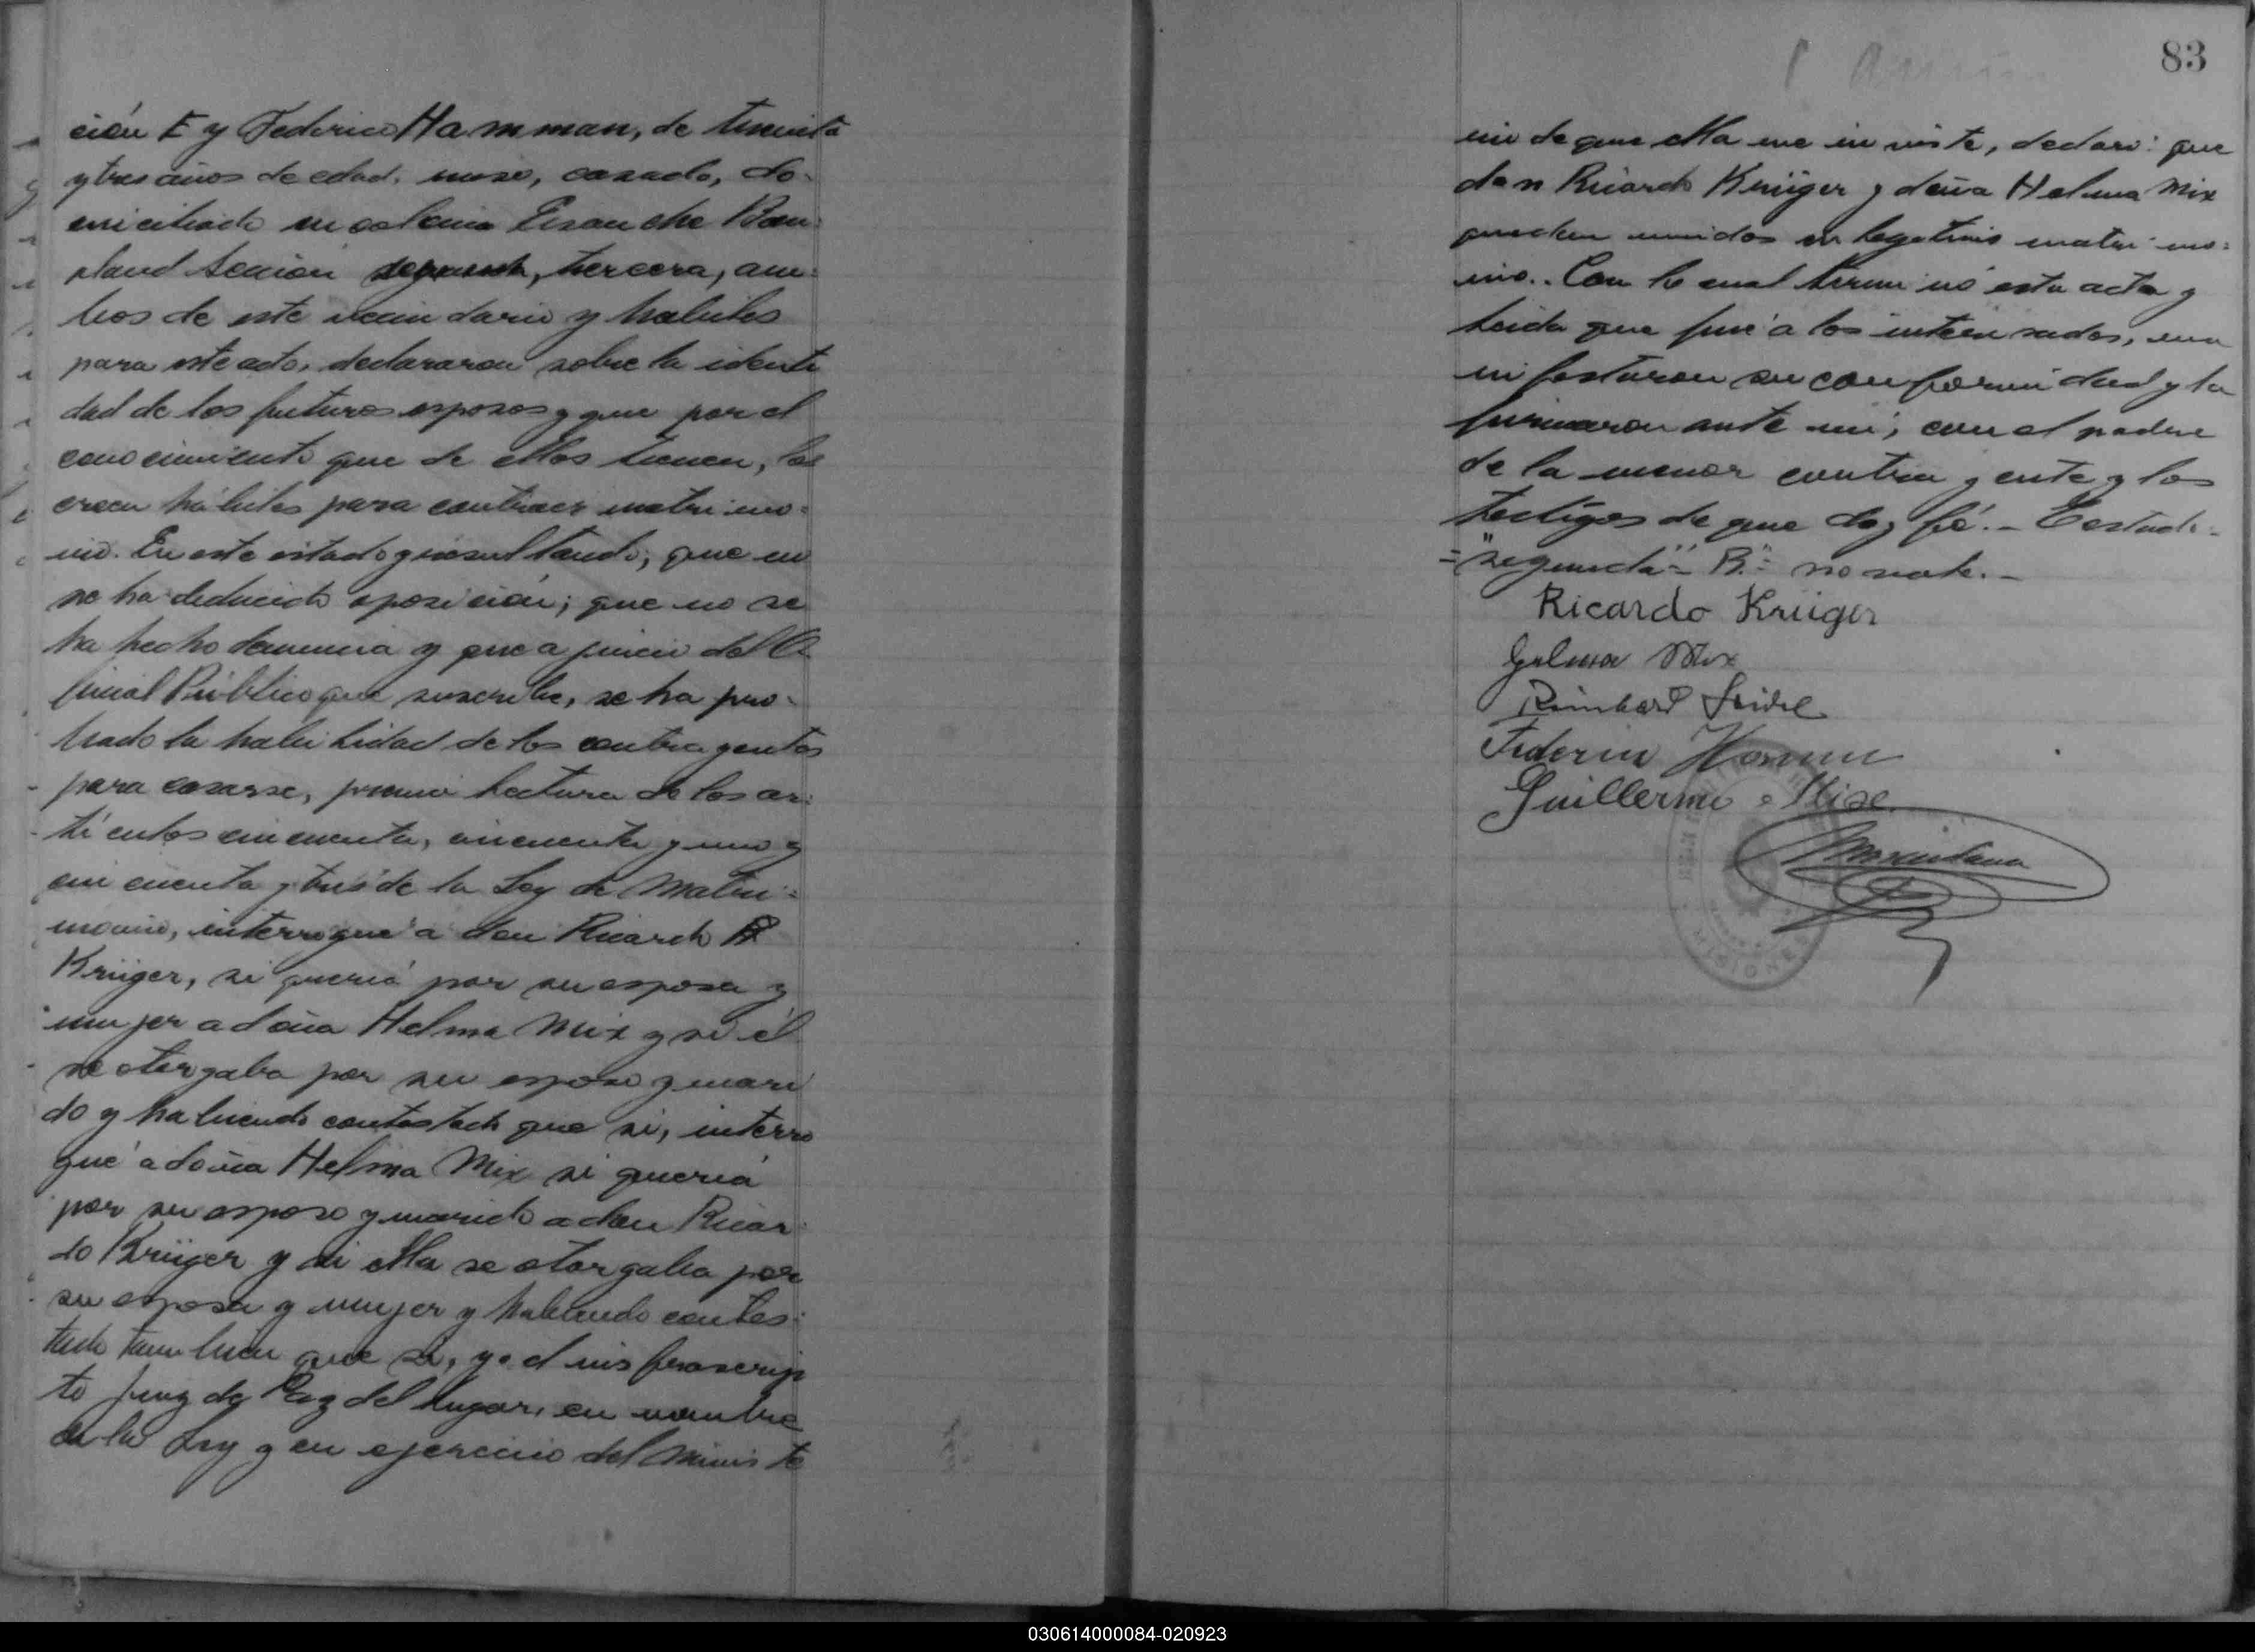 ción E y Federico Hamman, de treinta
y tres años de edad, ruso, casado, do-
miciliado en colonia Ensanche Bon-
pland Sección segunda, tercera, am-
bos de este vecindario y habiles
para este acto, declararon sobre la identi
dad de los futuros esposos y que por el
conocimiento que de ellos tienen, los
creen hábiles para contraer matrimo-
nio. En este estado y resultando; que no
se ha deducido oposición; que no se
ha hecho denuncia y que a juicio del O
ficial Público que suscribe, se ha pro-
bado la habilidad de los contrayentes
para casarse, previa lectura de los ar-
tículos cincuenta, cincuenta y uno y
cincuenta y tres de la Ley de Matri-
monio, interrogué a don Ricardo R
Krüger, si quería por su esposa y
mujer a doña Helma Mix y si él
se otorgaba por su esposo y mari
do y habiendo contestado que si, interro
gué a doña Helma Mix si quería
por su esposo y marido a don Ricar-
do Krüger y si ella se otorgaba por
su esposa y mujer y habiendo contes-
tado tambien que si, yo el infrascrip
to Juez de Paz del lugar, en nombre
de la Ley y en ejercicio del Ministe
83
rio de que ella me inviste, declaro: que
don Ricardo Krüger y doña Helma Mix
quedan unidos en legitimo matrimo-
nio.. Con lo cual terminó esta acta y
leida que fué a los interesados, ma
nifestaron su conformidad y la
firmaron ante mi; con el padre
de la menor contrayente y los
testigos de que doy fé.- Testado-
="segunda"- R.- no vale.-
Ricardo Krüger
Helma Mix
Reinhard Seidel
Federico Hamm
Guillermo Mix
MISIONES
030614000084-020923